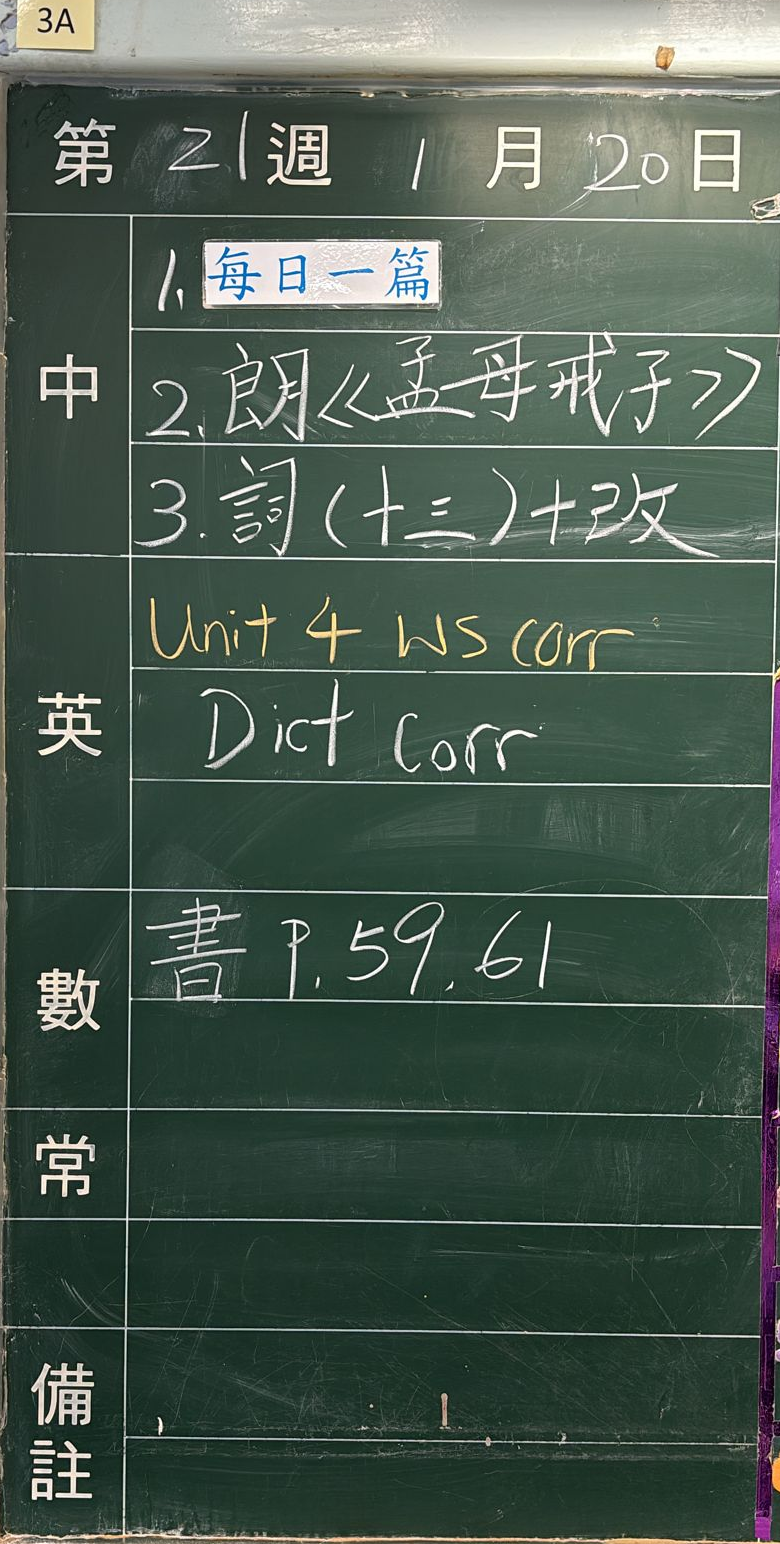 3A
第 21 週 1 月 20 日
中
1. 每日一篇
2. 朗《孟母戒子》
3. 詞(十三)+改
英
Unit 4 WS corr
Dict corr
數
書 P. 59, 61
常
備註